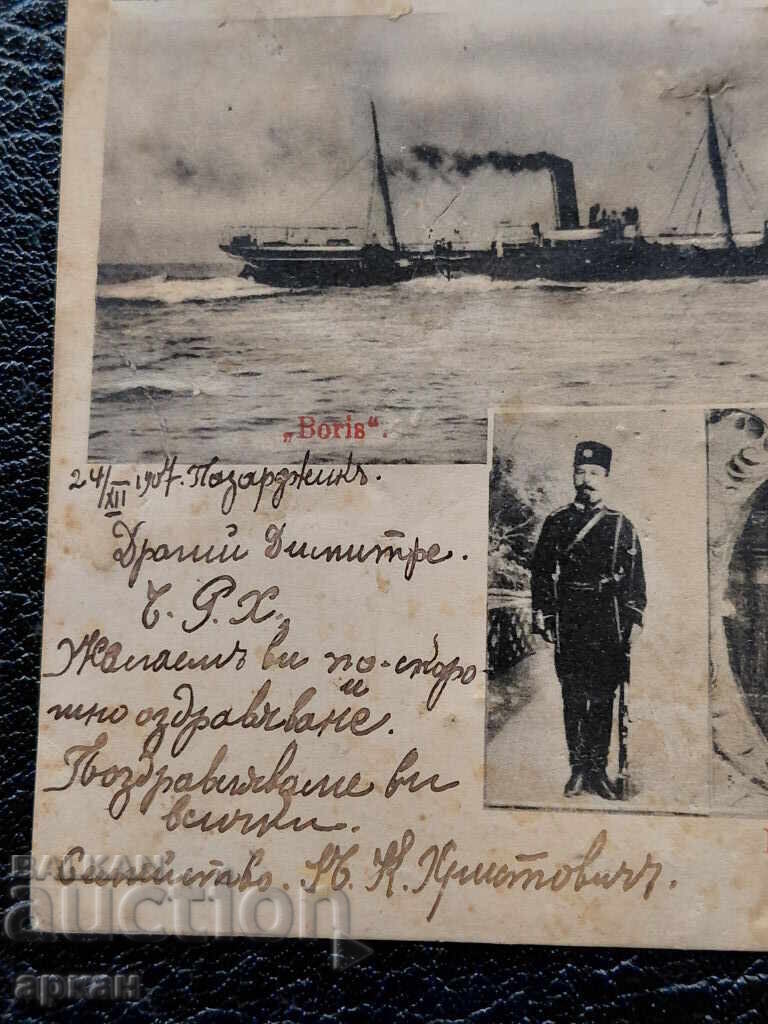 „Boris“.
24/XII 1907. Пазарджикъ.
Драгий Димитре.
Ч. Р. Х.
Желаемъ ви по-скоро-
шно оздравяване.
Поздравяваме ви
всички.
Семейство. К. Христовичъ.
BALKAN
auction
аркан